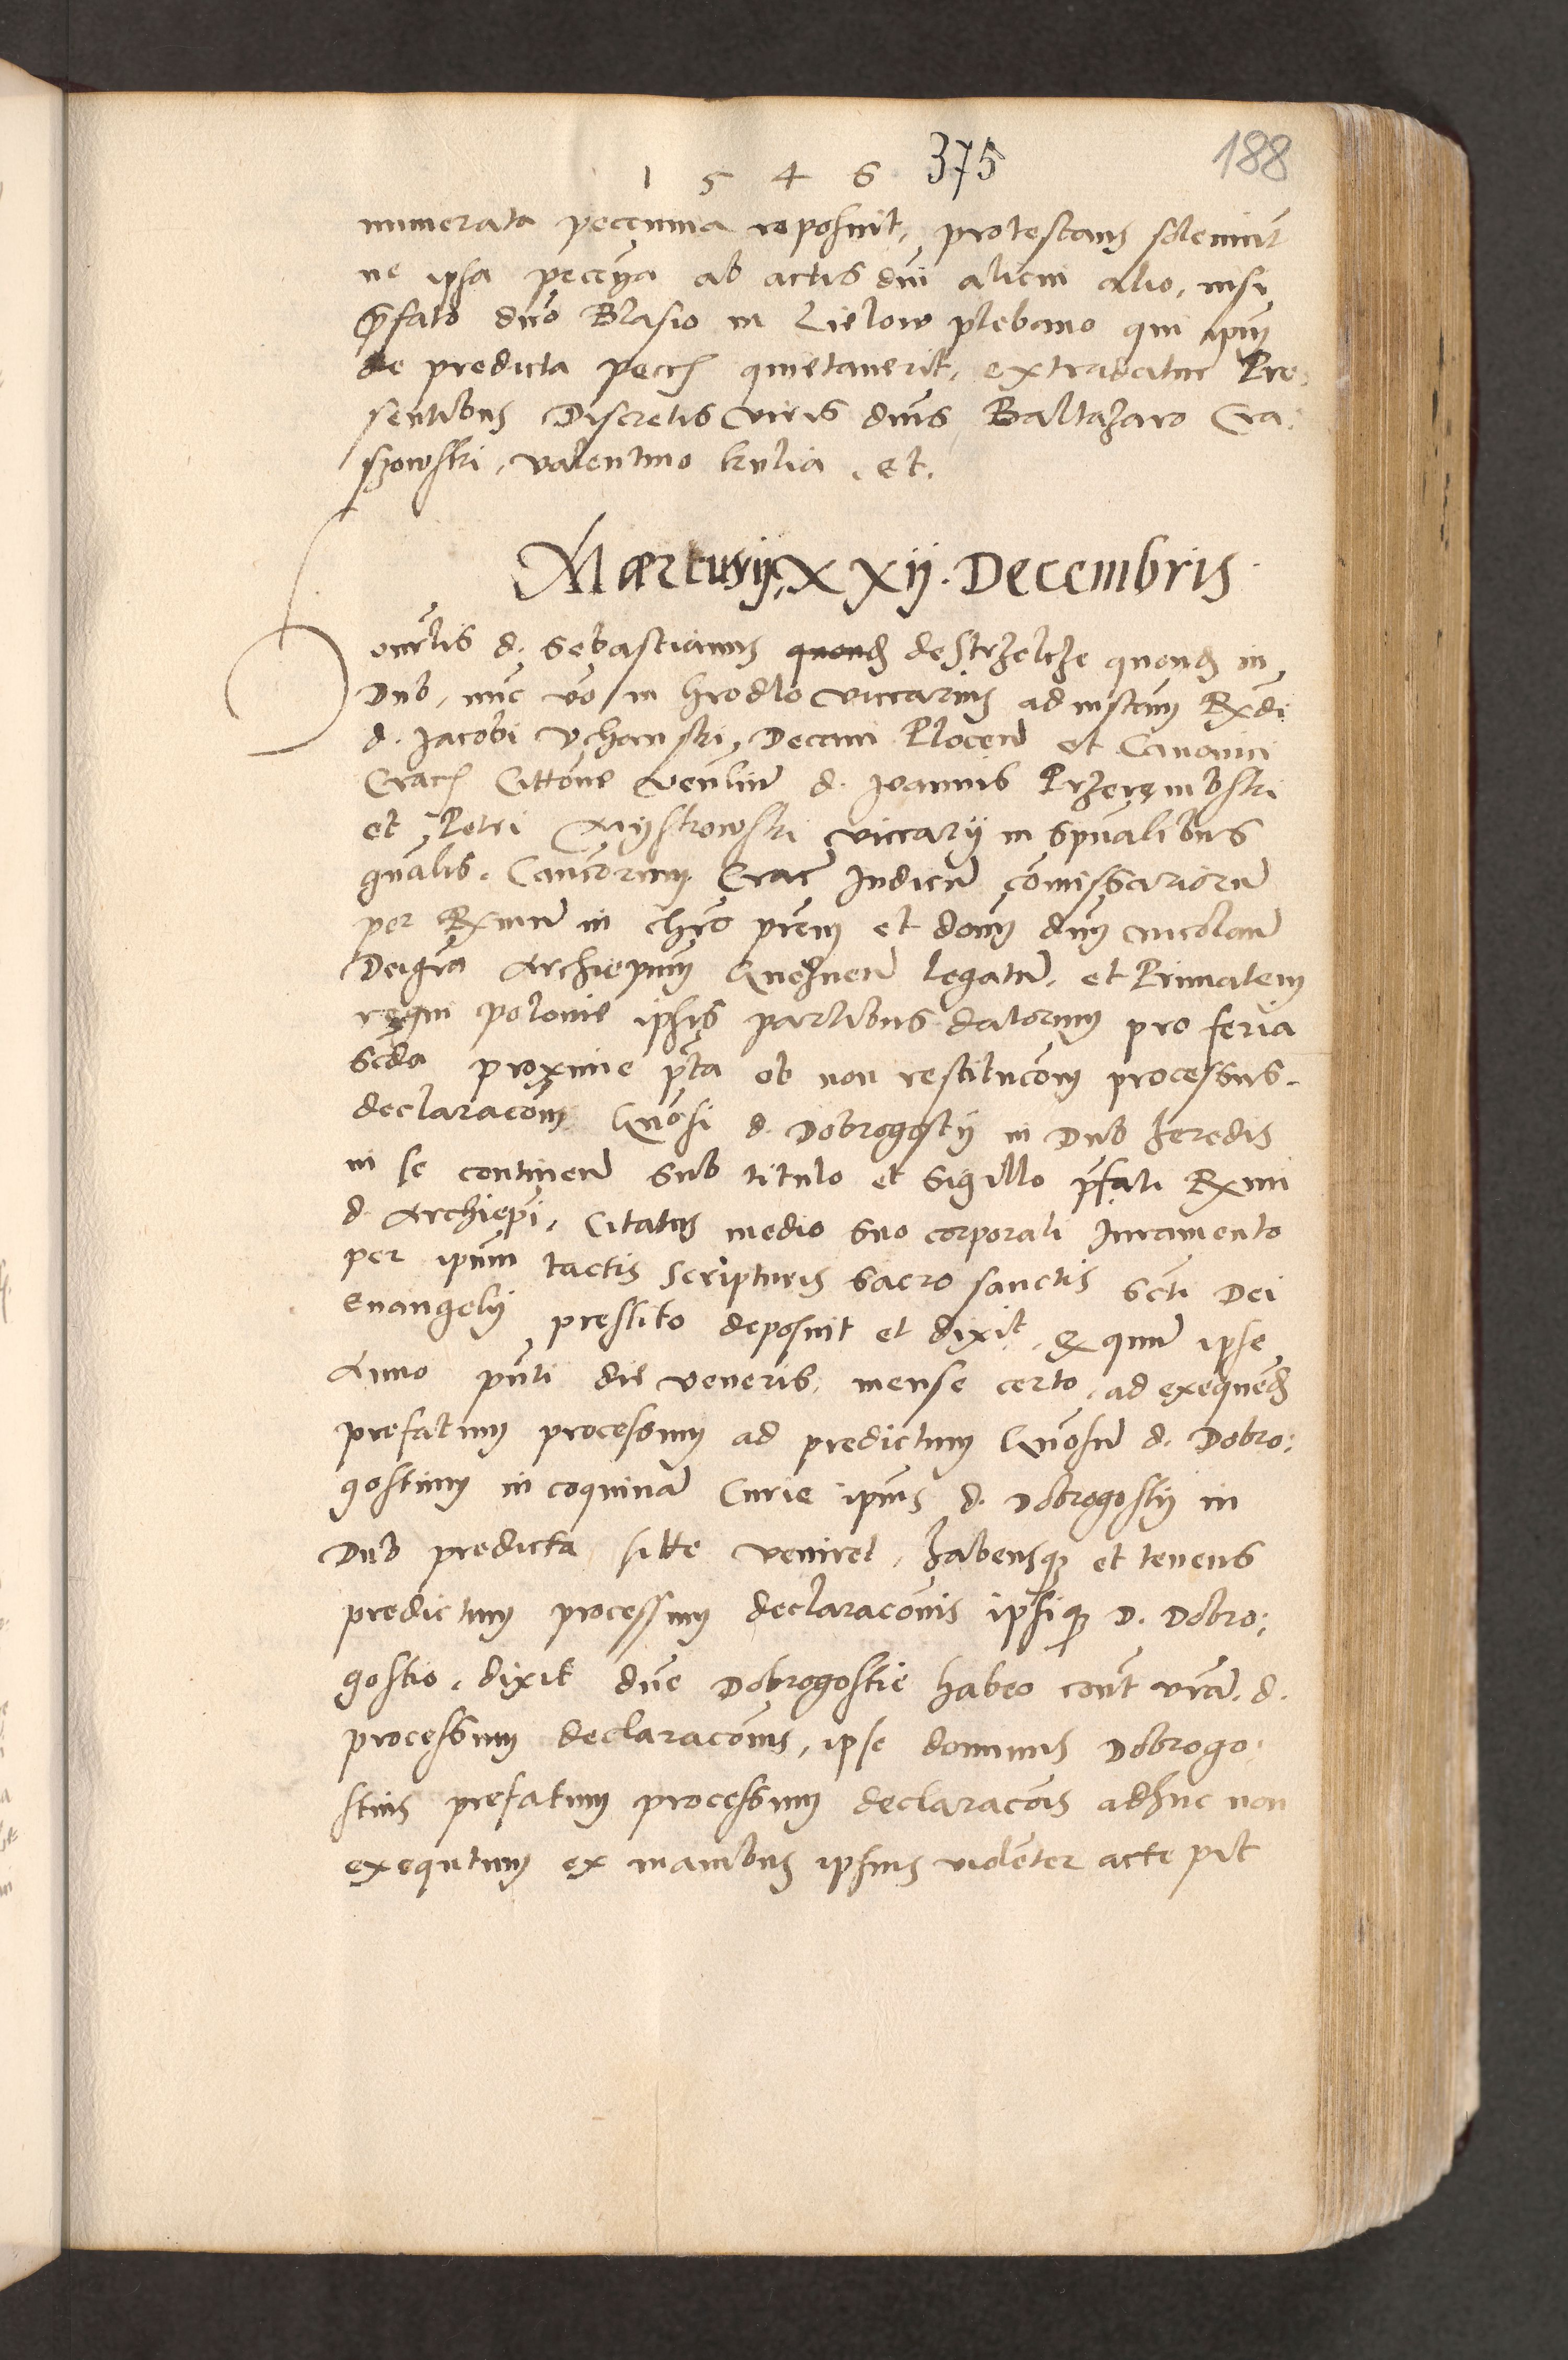 1 5 4 6 375 188
numerata peccunia reposuit, protestans solemnit
ne ipsa peccya ab actis dni alicui alio, nisi
pfato dno Blasio in Lielow plebano qui ipm
de predicta pecc quietaverit, extradatur Pre:
sentibus Discretis viris dnis Baltazaro Cra:
szowski, valentino kulia, et.
Martis, XXij. Decembris
Honrlis d. Sebastianus quond de Strzelcze quond in
Dub, nuc vo in hrodlo viccarius ad instam Rxdi
d. Jacobi Uchanski, Decani Plocen et Canonici
Crac Cittone venlium d. Joannis Przerembski
et Petri Myskowski viccarij in spualibus
gnalis, Cancorum Crac Judicu comissarioru
per Rxmu in chro prem et donm dnm Nicolau
Dei gra Archiepum Gneznen legatu, et Primatem
regni Polonie ipsis partibus datorum pro feria
scda proxime pta ob non restitucom processus
declaracom Gnosi d. Dobrogostij in Dub heredis
in se continen sub titulo et sigillo pfati Rxmi
d. Archiepi, Citatus medio suo corporali Juramento
per ipum tactis scripturis sacro sanctis scti Dei
Evangelij prestito deposuit et dixit, quu ipse
Anno pnti die veneris, mense certo, ad exequend
prefatum processum ad predictum Gnosum d. Dobro:
gostium in coquinam Curie ipius d. Dobrogostij in
Dub predicta sitte veniret, habensq et tenens
predictum processum declaracomis ipsiq D. Dobro:
gostio, dixit dne Dobrogostie habeo cont vram. d.
processum declaracomis, ipse dominus Dobrogo:
stius prefatum processum declaracois adhuc non
exequtum ex manibus ipsius violenter accepit